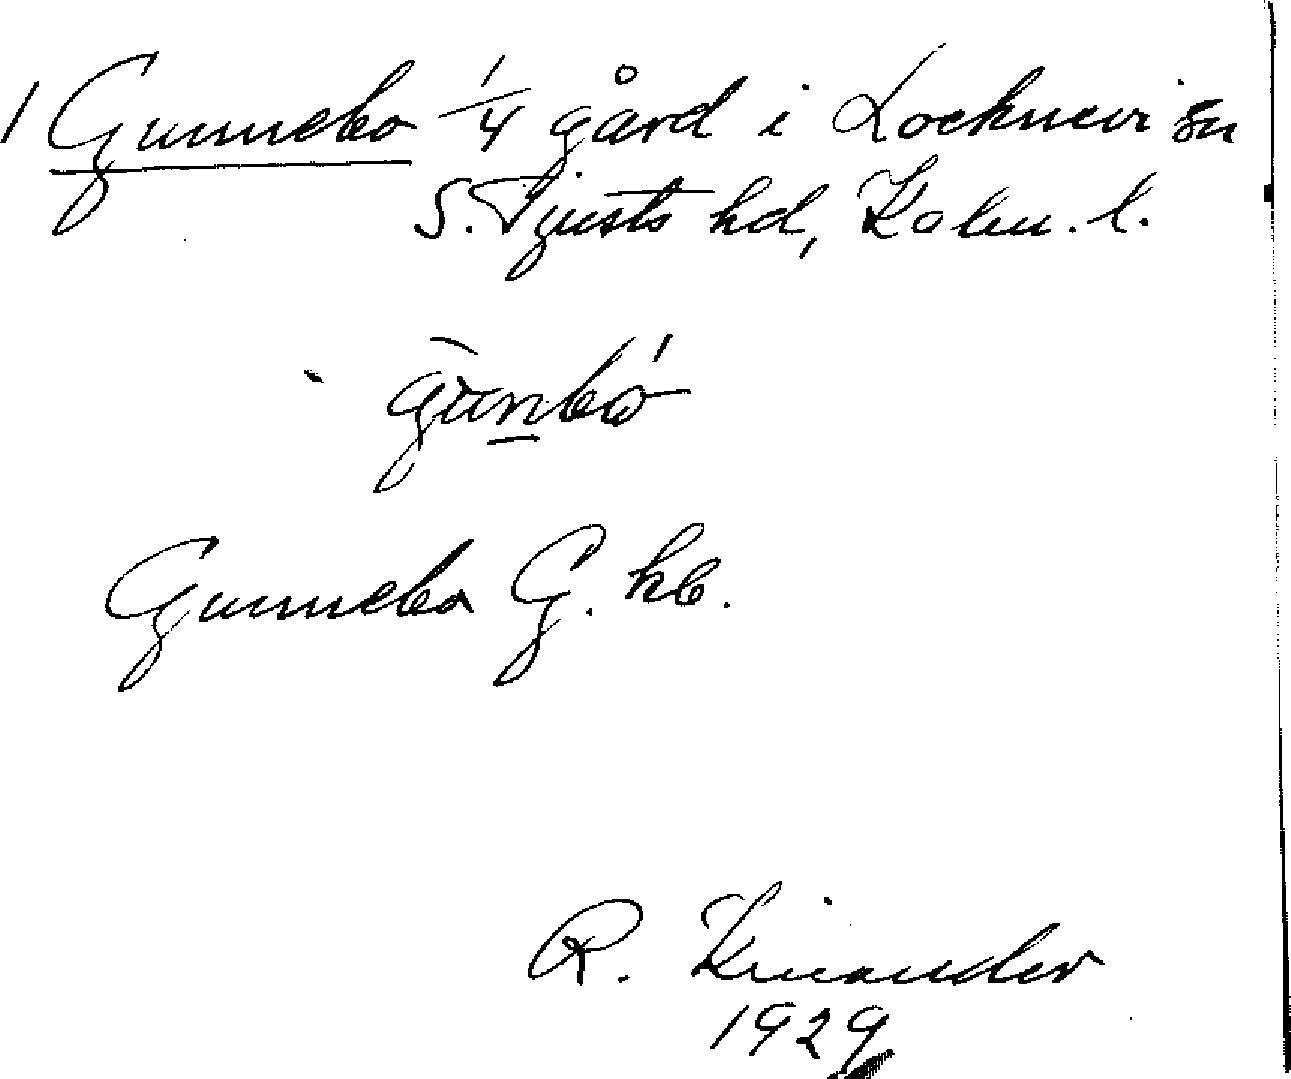 1 Gunnebo 1/4 gård i Locknevi sn
S. Tjusts hd, Kalm. l.
gùnbó
Gunnebo G. hb.
R. Kinander
1929